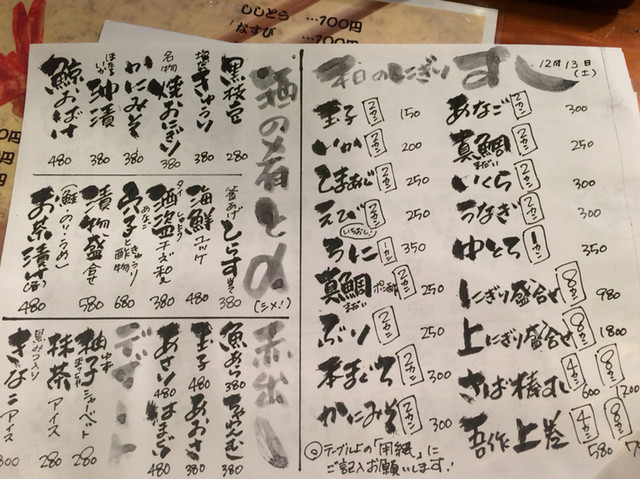 ししとう …100円
なすび …100円
12月13日(土)
本日のにぎり すし
玉子 2カン 150
いか 2カン 200
しまあじ 2カン 250
えび 2カン 250
いちおし!
うに 1カン 350
真鯛 ポン酢 2カン 250
まだい
ぶり 2カン 250
本まぐろ 2カン 300
かにみそ 2カン 300
◎テーブル上の「用紙」に
ご記入お願いします!
あなご 2カン 300
真鯛 2カン 250
まだい
いくら 2カン 300
うなぎ 2カン 300
ゆとろ 1カン 350
にぎり盛合せ 8カン 980
上にぎり盛合せ 8カン 1800
さば棒すし 4カン 600 8カン 1200
吾作上巻 4カン 580 8カン
酒の肴と〆
(シメ!)
黒枝豆 280
梅たたききゅうり 380
名物 焼おにぎり 380
かにみそ 380
ほたるいか 沖漬 380
鯨おばけ 480
釜あげ しらす 380
海鮮ユッケ 480
酒盗チーズ和え 380
穴子ときゅうり酢物 680
あなご
漬物盛合せ 580
お茶漬け(各) 480
(鮭・のり・うめ)
赤出し
魚あら 380
玉子 380
あさり 480
なめこ 380
あおさ 380
はまぐり 480
デザート
柚子シャーベット 280
ゆず
抹茶アイス 280
まっちゃ
黒みつ入り きなこアイス 300